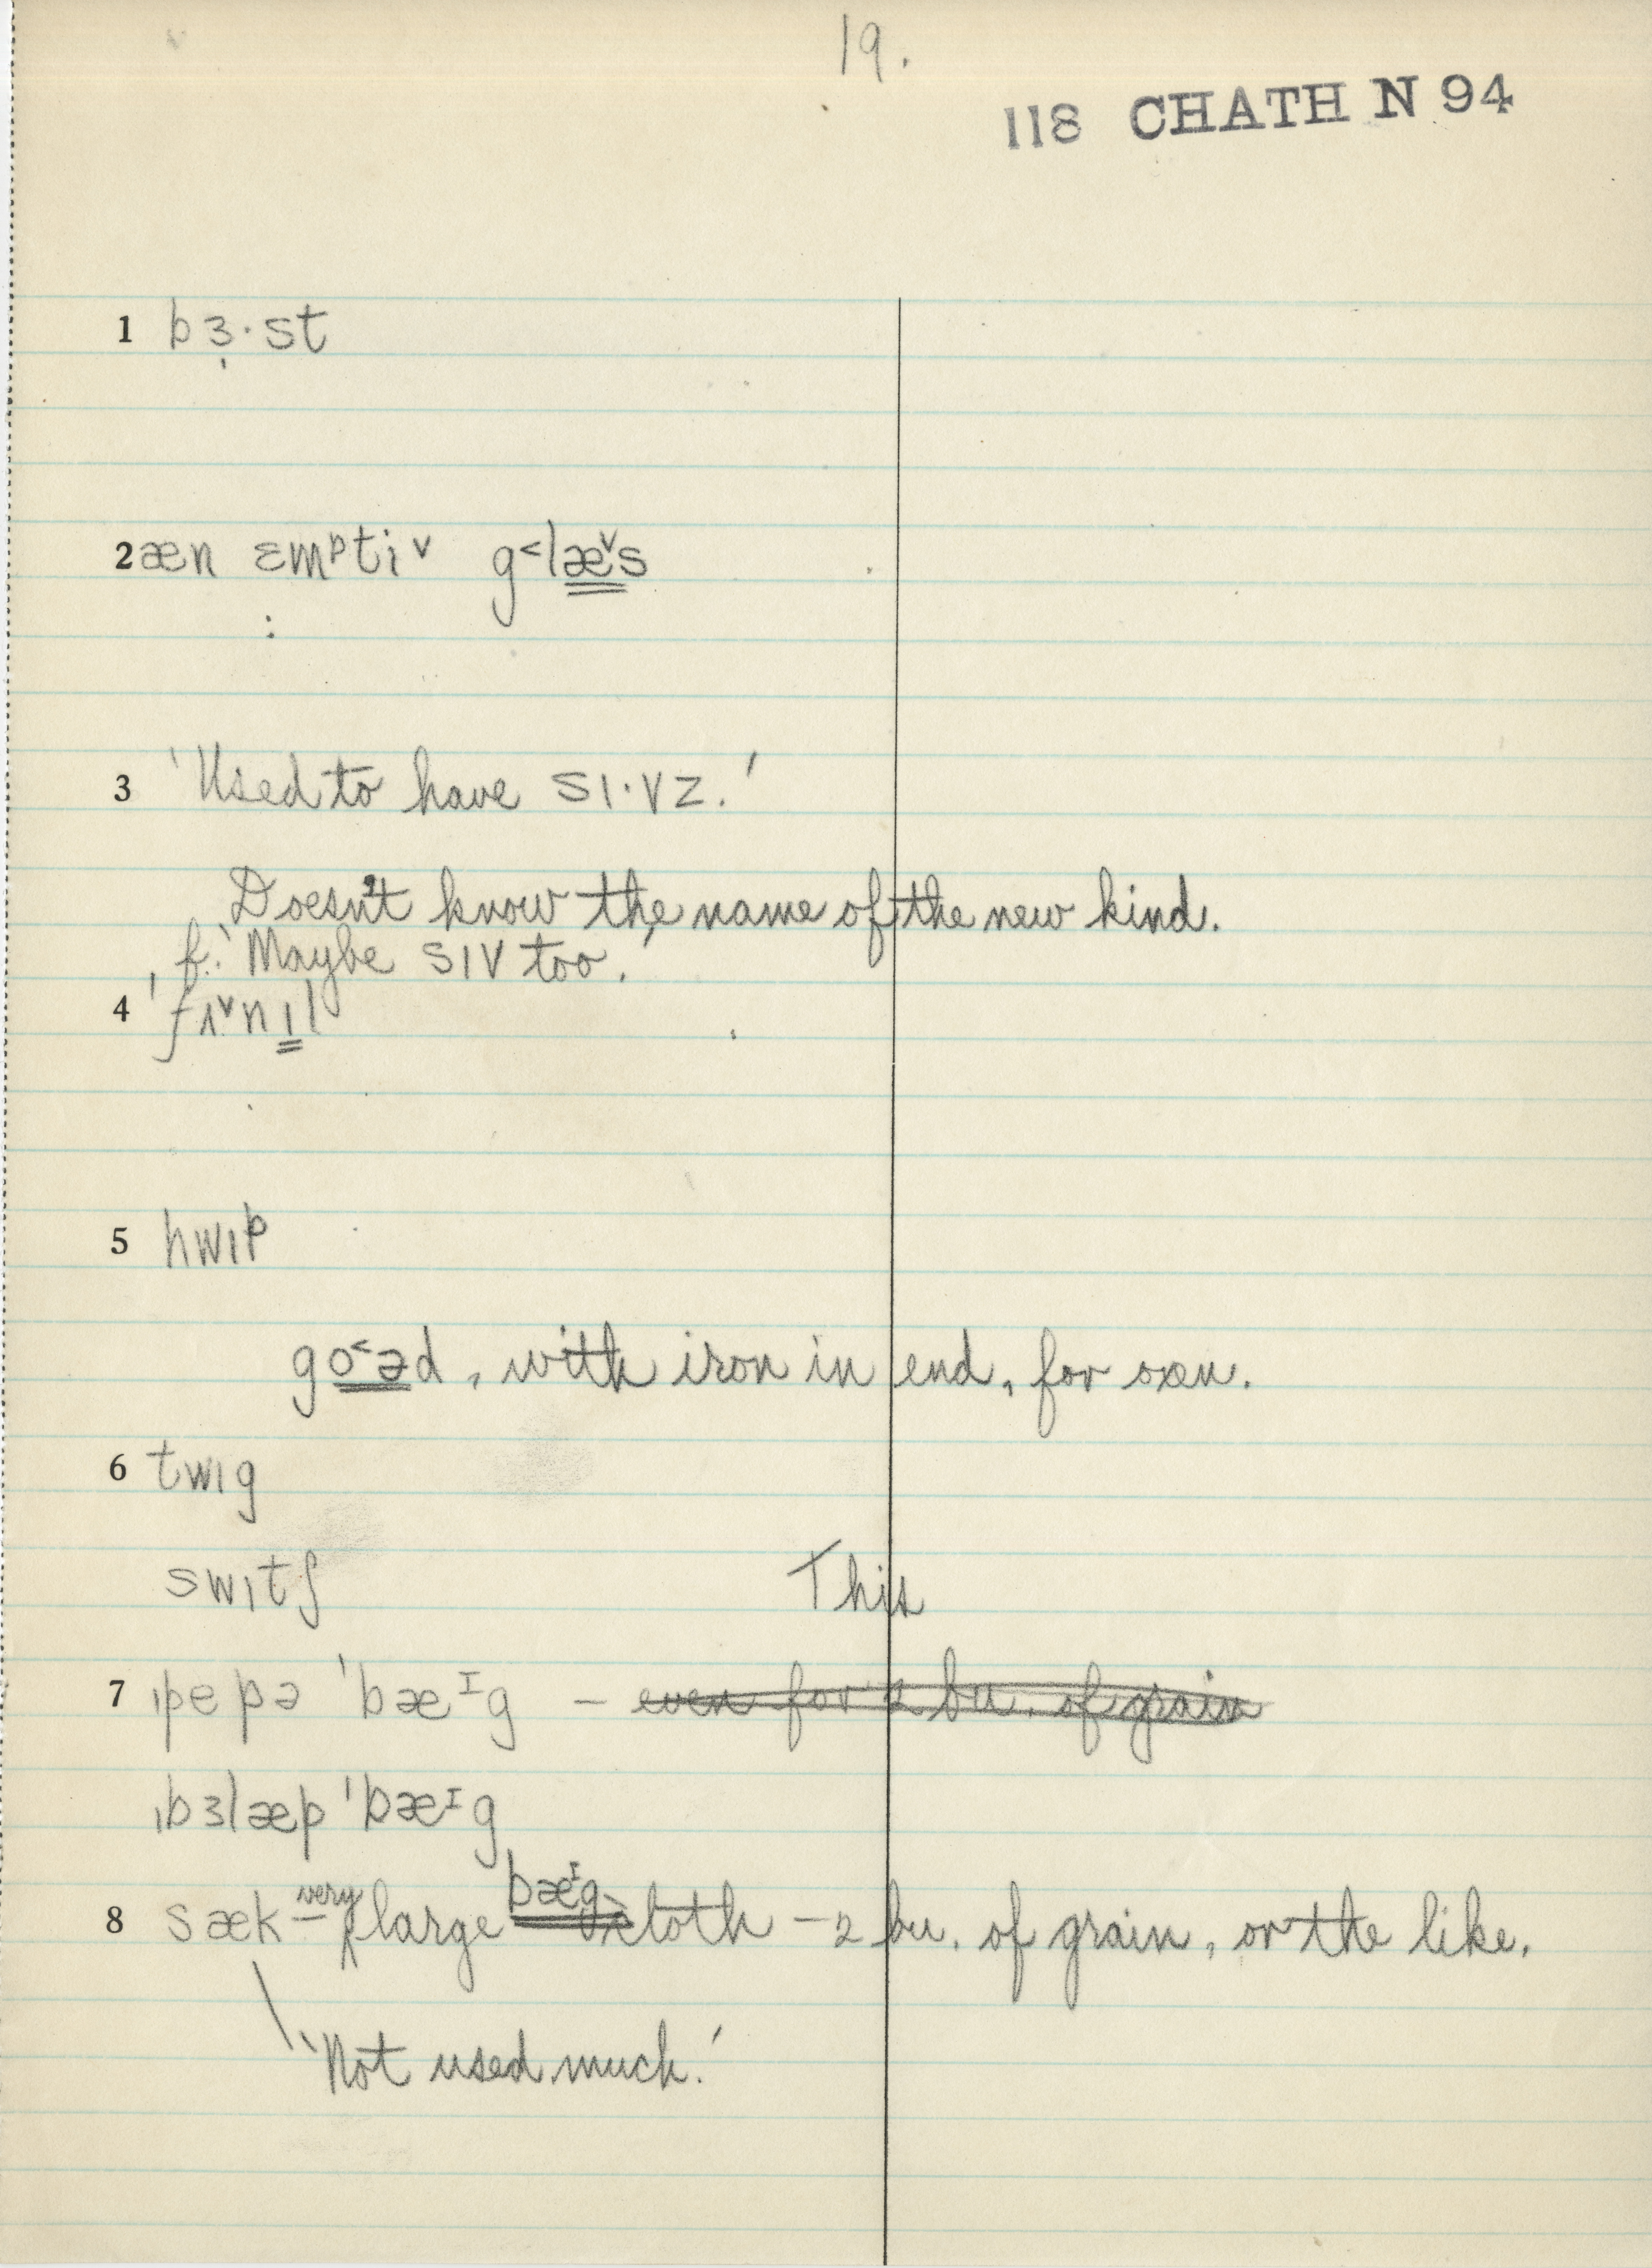 19.
118 CHATH N 94
1 bɜ̩·st
2 æn ɛmᵖtiᵛ g˂læᵛs
3 'Used to have sɪ·vz.'
Doesn't know the name of the new kind.
f. 'Maybe sɪv too.'
4 ˈfʌᵛnɪl
5 hwɪp
go˂əd, with iron in end, for oxen.
6 twɪg
switʃ This
7 ˌpepə ˈbæᶦg – even for 2 bu. of grain
ˌbɜlæp ˈbæᶦg
8 sæk – very large bæᶦg cloth – 2 bu. of grain, or the like.
'Not used much.'